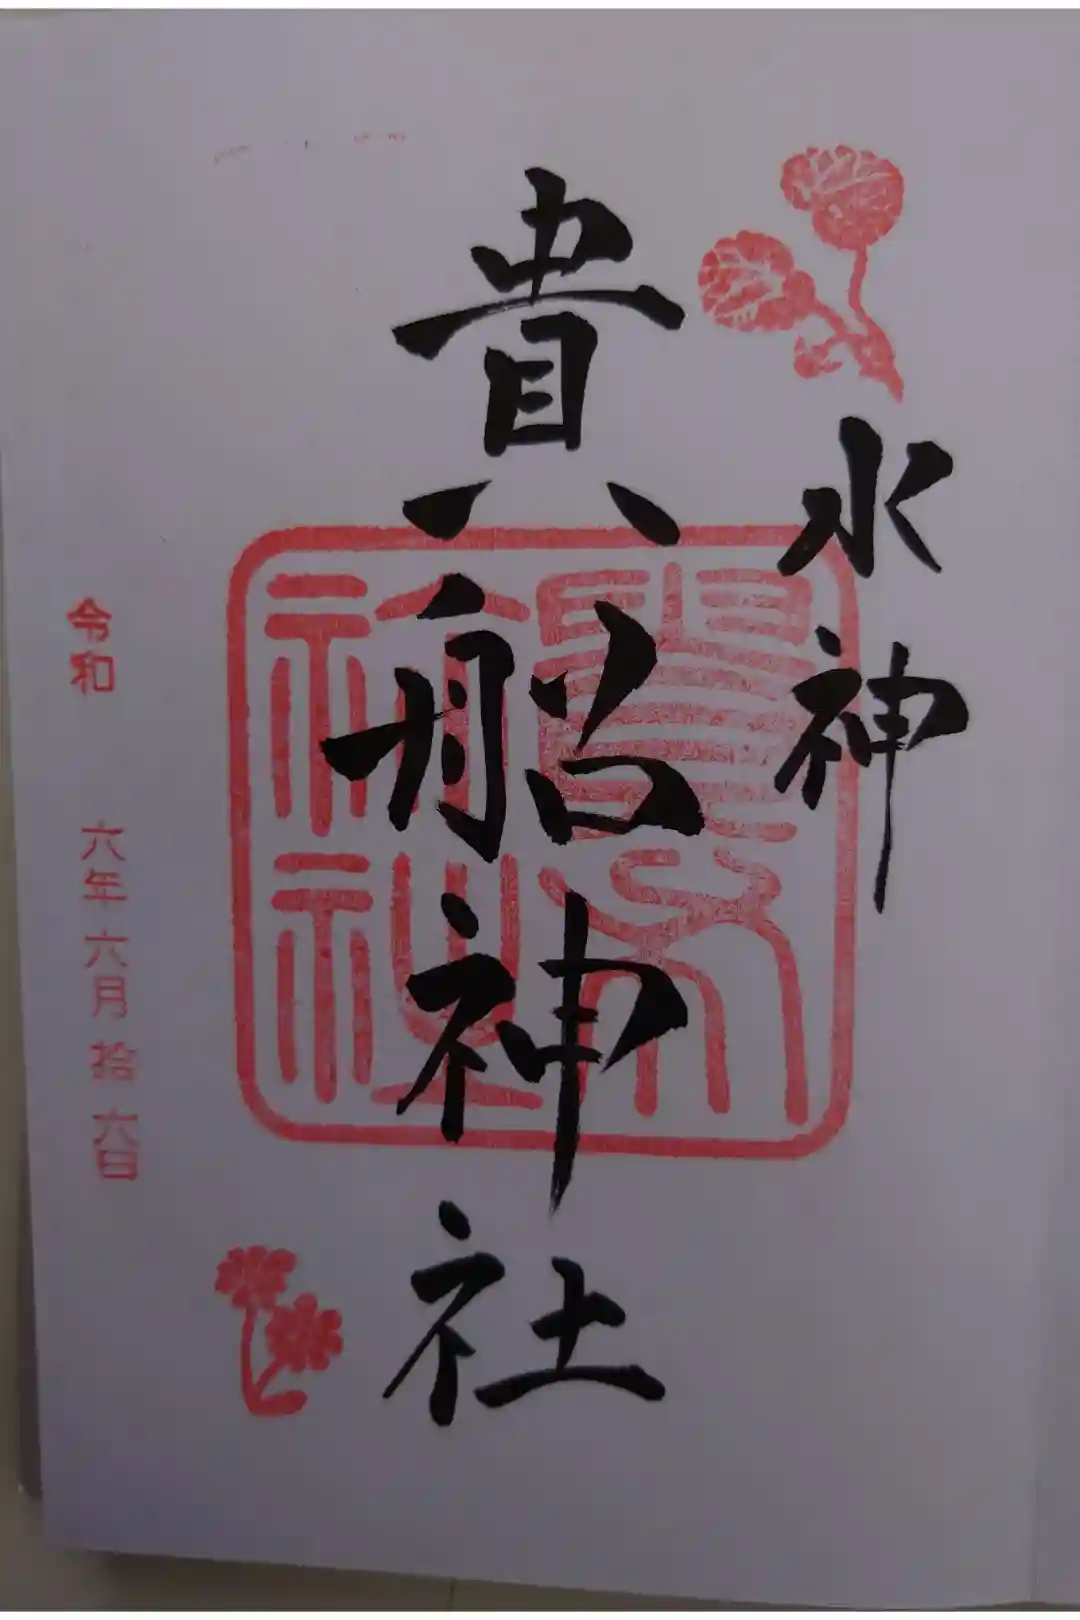 水神
貴船神社
令和 六年六月拾六日